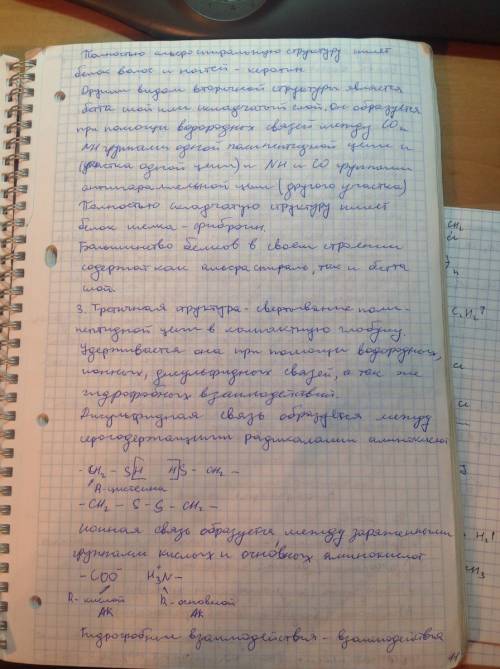 Полностью альфаспиральную структуру имеет
белок волос и ногтей - кератин.
Другим видом вторичной структуры является
бетта слой или складчатый слой. Он образуется
при помощи водородных связей между CO и
NH группами одной полипептидной цепи и
(участка одной цепи) и NH и CO группами
антипаралельной цепи (другого участка)
Полностью складчатую структуру имеет
белок шелка - фиброгин.
Большинство белков в своем строении
содержат как альфа спираль, так и бетта
слой.
3. Третичная структура - свертывание поли-
пептидной цепи в компактную глобулу.
Удерживается она при помощи водородных,
ионных, дисульфидных связей, а так же
гидрофобных взаимодействий.
Дисульфидная связь образуется между
серосодержащими радикалами аминокислот
- CH₂ - S[H H]S - CH₂ -
R-цистеина
- CH₂ - S - S - CH₂ -
Ионная связь образуется между заряженными
группами кислых и основных аминокислот
- COO⁻ H₃N -
R - кислой R - основной
АК АК
Гидрофобные взаимодействия - взаимодействия